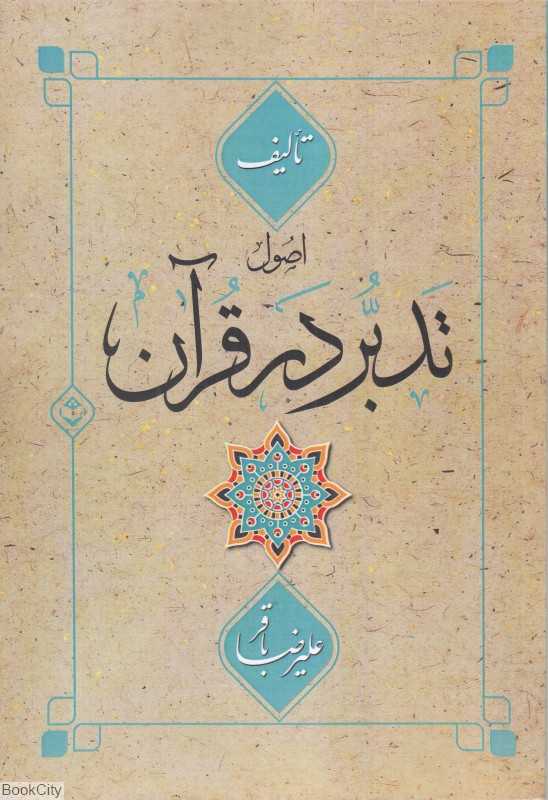 تألیف
اصول
تَدبُّر دَر قُرآن
علیرضا باقر
BookCity